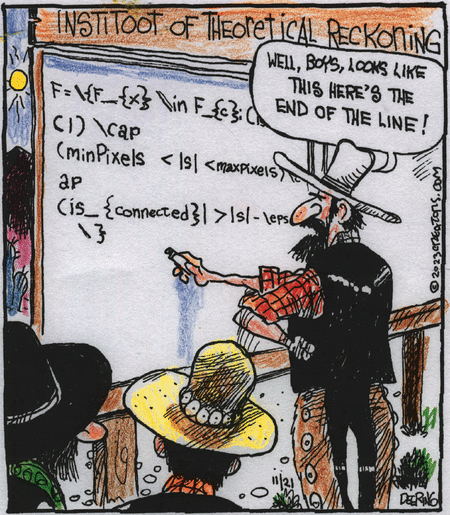 INSTITOOT OF THEORETICAL RECKONING
WELL, BOYS, LOOKS LIKE
THIS HERE'S THE
END OF THE LINE!
F=\{F_{x} \in F_{c}: (
(1) \cap
(minPixels < |s| < maxpixels)
ap
(is_{connected}| > |s| - \eps
\}
© 2023 creators.com
11/21
DEERING